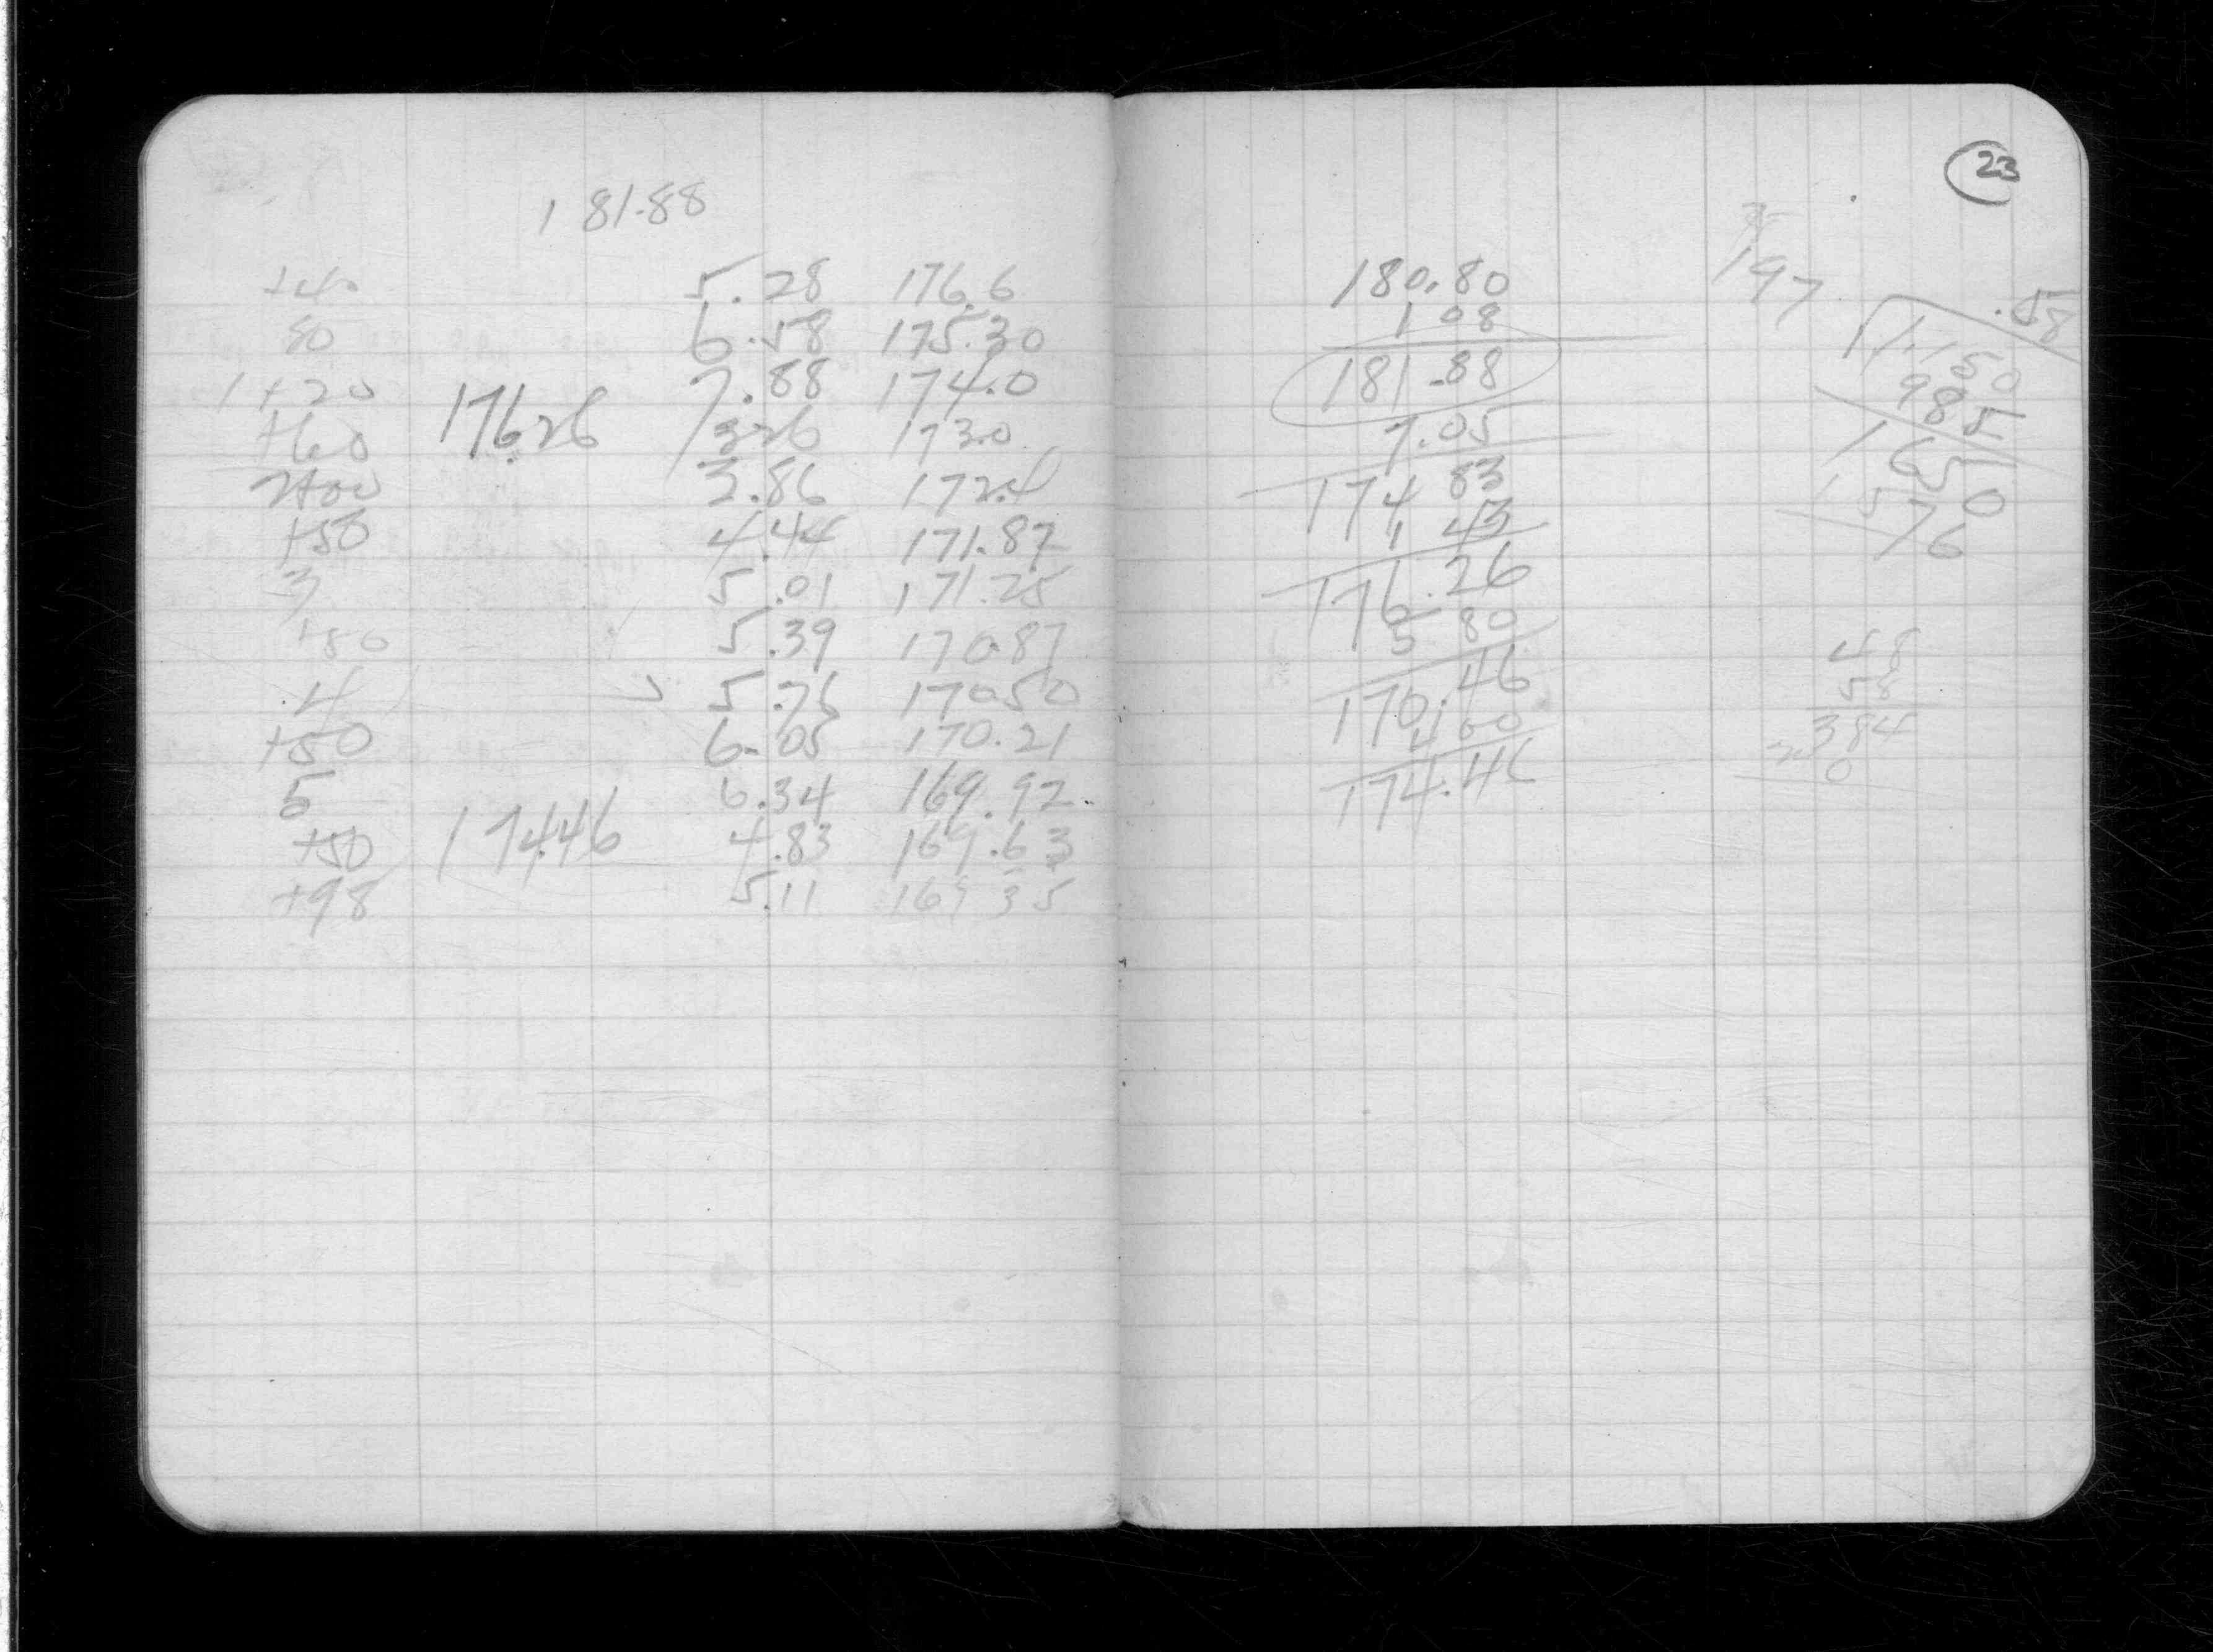 181.88
+40 5.28 176.6
80 6.58 175.30
1+20 7.88 174.0
+60 176.26 3.26 173.0
2+00 3.86 172.4
+50 4.44 171.82
3 5.01 171.25
+80 5.39 170.87
4 5.76 170.50
+50 6.05 170.21
5 6.34 169.92
+50 174.46 4.83 169.63
+98 5.11 169.35
23
180.80
1.08
181.88
7.05
174 83
1 43
176.26
5 80
170.46
4 00
174.46
197
.58
1.1550
985
1650
1576
48
58
384